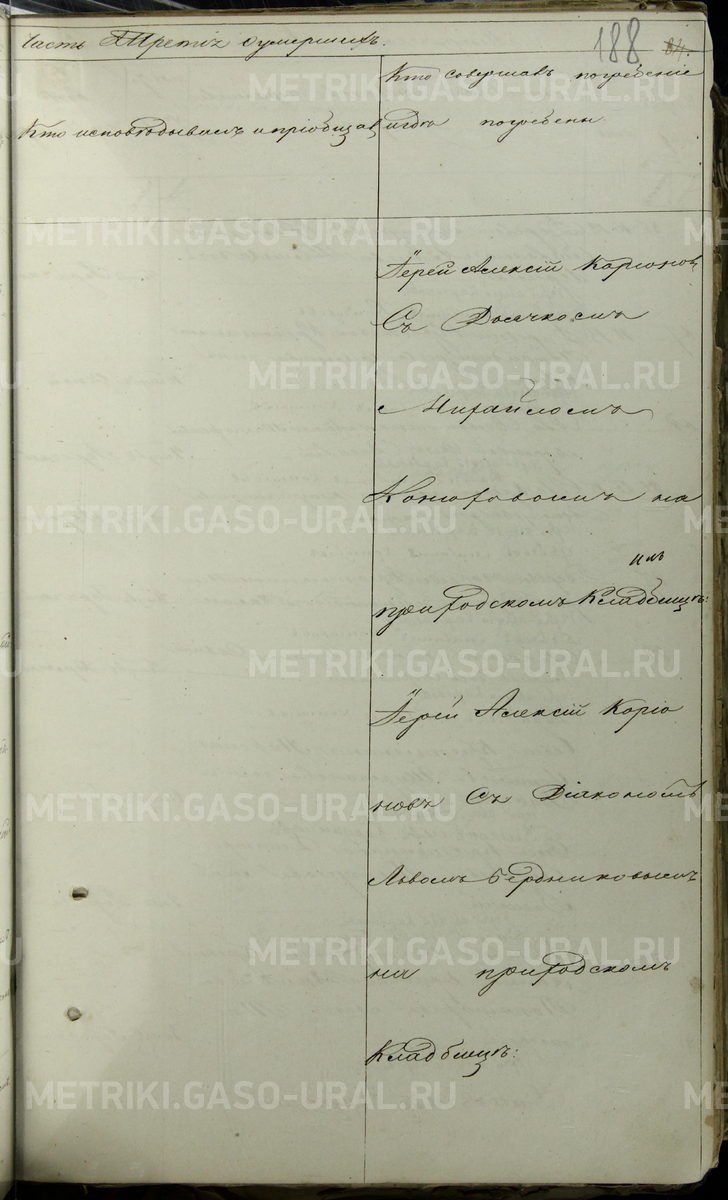 Часть Третія оумершихъ.
188
84.
Кто исповѣдывалъ и пріобщалъ
Кто совершалъ погребеніе
и гдѣ погребены.
Іерей Алексій Каріоновъ
Съ Дьячкомъ
Михайломъ
на
приходскомъ Кладбищѣ:
Іерей Алексій Каріо
новъ Съ Діакономъ
Львомъ Бердниковымъ
на приходскомъ
Кладбищѣ:
METRIKI.GASO-URAL.RU